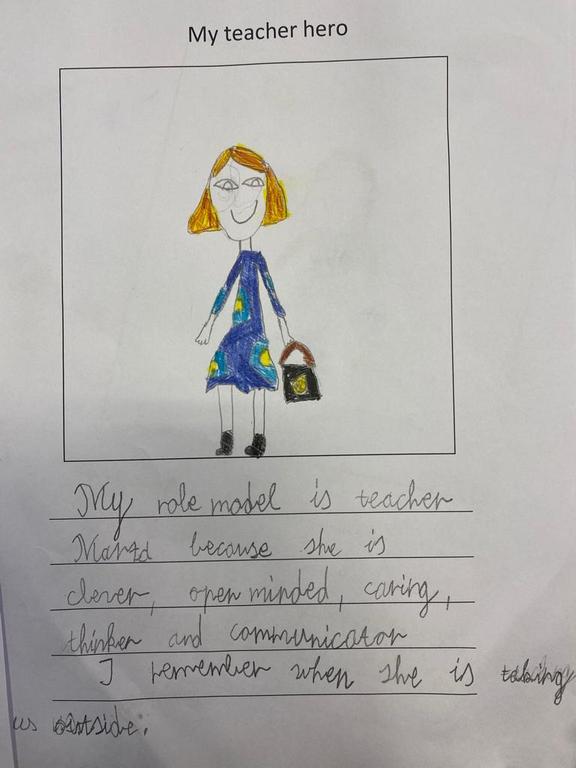 My teacher hero
My role model is teacher
because she is
clever, open minded, caring,
thinker and communicator
I remember when she is taking
us outside.